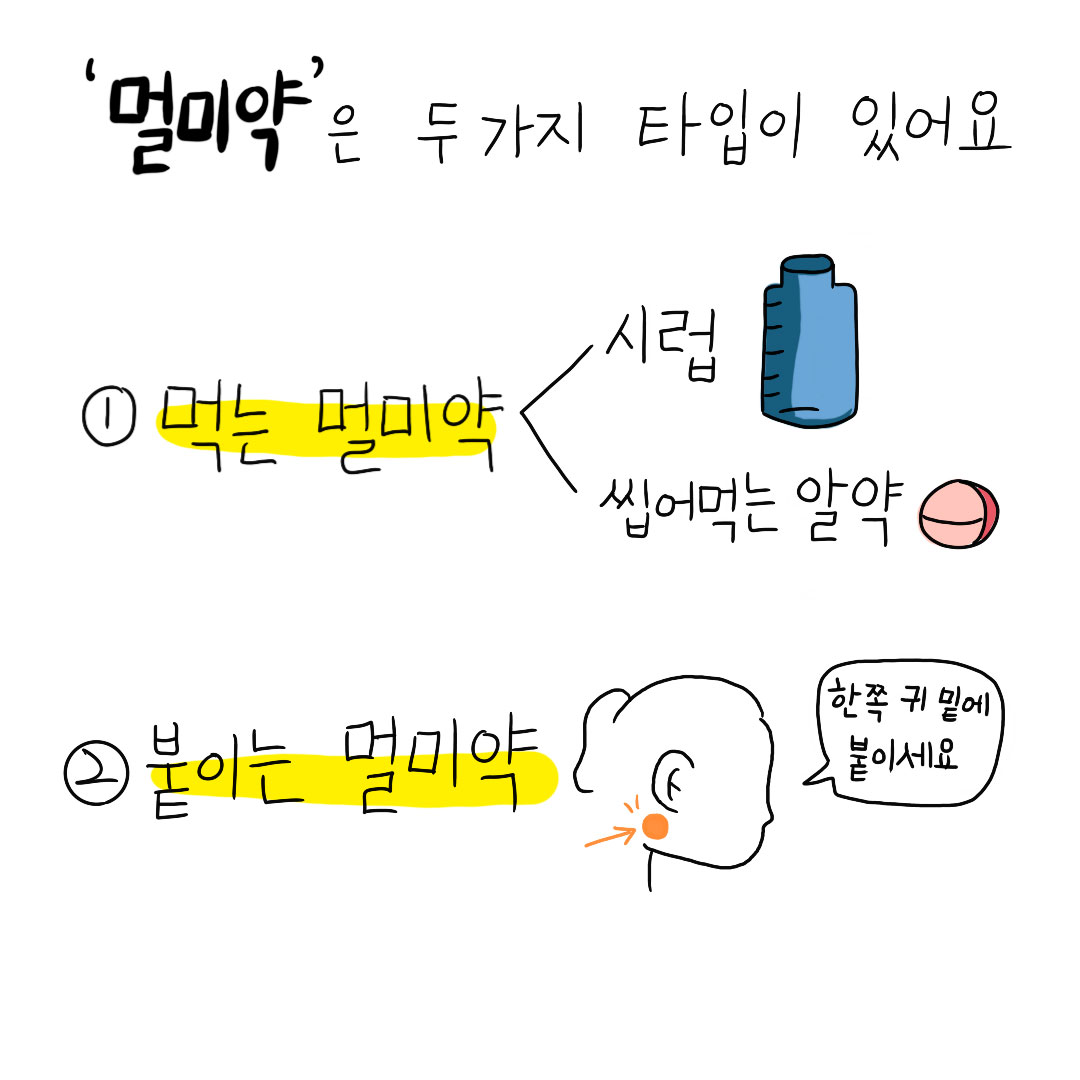 '멀미약'은 두가지 타입이 있어요
① 먹는 멀미약
시럽
씹어먹는 알약
② 붙이는 멀미약
한쪽 귀 밑에
붙이세요